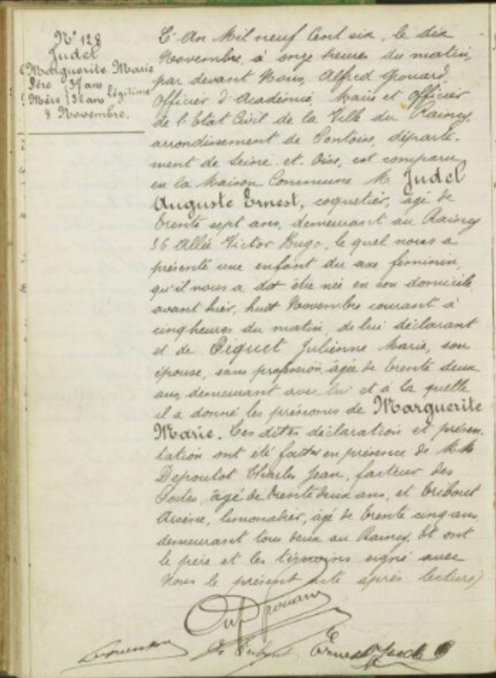 N° 128
Judel
Marguerite Marie
Père 37 ans
Mère 32 ans légitime
8 Novembre.
L'An Mil neuf Cent six, le dix
Novembre, à onze heures du matin,
par devant Nous, Alfred
Officier d'Académie, Maire et Officier
de l'Etat Civil de la Ville du Raincy,
arrondissement de Pontoise, départe-
ment de Seine et Oise, est comparu
en la Maison Commune M. Judel
Auguste Ernest, coquetier, âgé de
trente sept ans, demeurant au Raincy
36 Allée Victor Hugo, le quel nous a
présenté une enfant du sexe féminin,
qu'il nous a dit être née en son domicile
avant hier, huit Novembre courant à
cinq heures du matin, de lui déclarant
et de Piquet Julienne Marie, son
épouse, sans profession âgée de trente deux
ans, demeurant avec lui et à la quelle
il a donné les prénoms de Marguerite
Marie. Ces dites déclaration et présen-
tation ont été faites en présence de M.M.
Depoulot Charles Jean, facteur des
Postes, âgé de trente deux ans, et
Arsène, limonadier, âgé de trente cinq ans
demeurant tous deux au Raincy. Et ont
le père et les témoins signé avec
Nous le présent acte après lecture
Ernest Judel